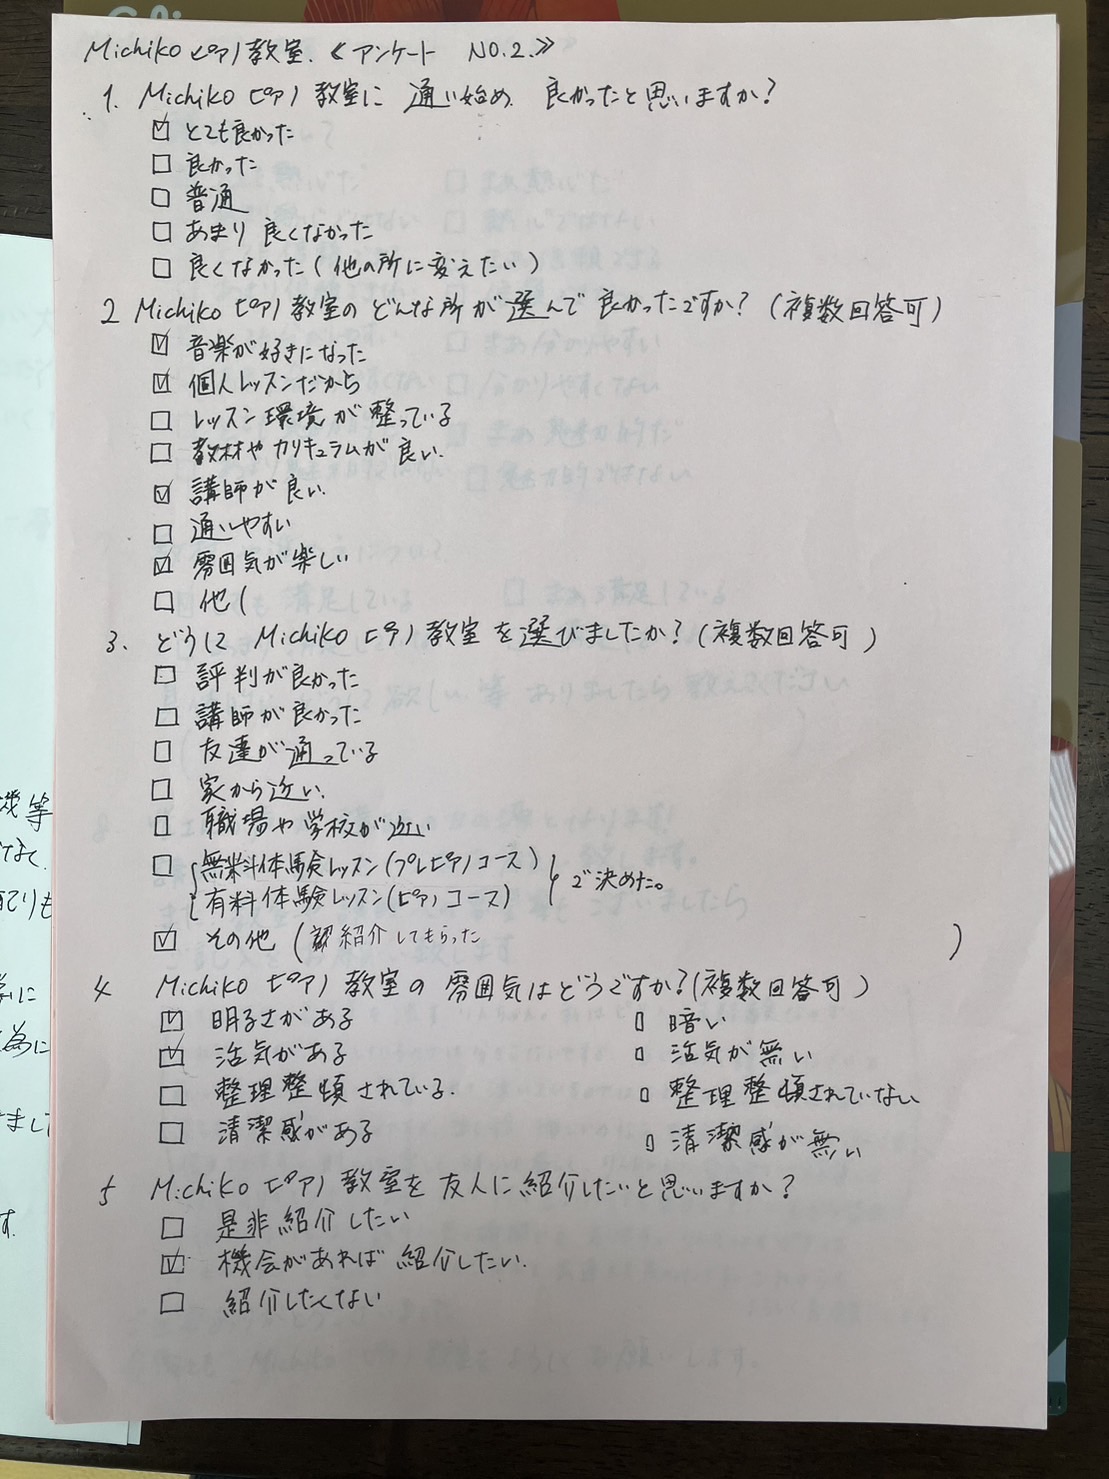 Michiko ピアノ教室.《アンケート NO.2.》
1. Michiko ピアノ教室に 通い始め 良かったと思いますか?
☑ とても良かった
□ 良かった
□ 普通
□ あまり良くなかった
□ 良くなかった(他の所に変えたい)
2 Michiko ピアノ教室の どんな所が選んで良かったですか?(複数回答可)
☑ 音楽が好きになった
☑ 個人レッスンだから
□ レッスン環境が整っている
□ 教材やカリキュラムが良い.
☑ 講師が良い.
□ 通いやすい
☑ 雰囲気が楽しい
□ 他(
3. どうして Michiko ピアノ教室を選びましたか?(複数回答可)
□ 評判が良かった
□ 講師が良かった
□ 友達が通っている
□ 家から近い.
□ 職場や学校が近い
□ 無料体験レッスン(プレピアノコース)
有料体験レッスン(ピアノコース) で決めた。
☑ その他( 紹介してもらった )
4 Michiko ピアノ教室の雰囲気はどうですか?(複数回答可)
☑ 明るさがある □ 暗い
☑ 活気がある □ 活気が無い
□ 整理整頓されている. □ 整理整頓されていない
□ 清潔感がある □ 清潔感が無い
5 Michiko ピアノ教室を友人に紹介したいと思いますか?
□ 是非紹介したい
☑ 機会があれば紹介したい.
□ 紹介したくない
機等